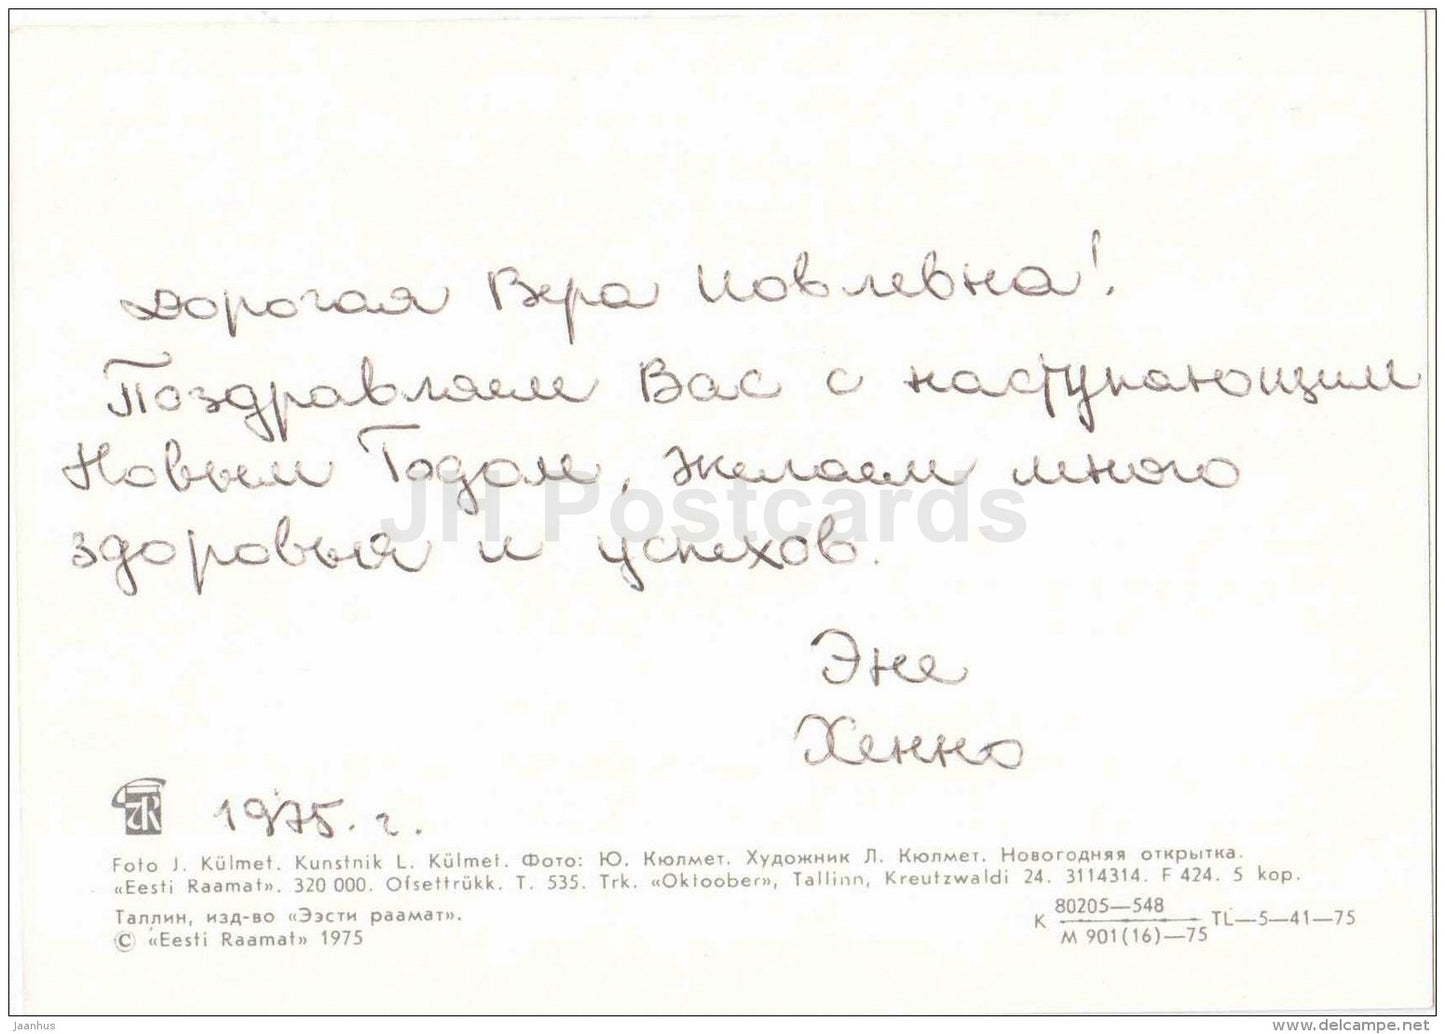 Дорогая Вера Иовлевна!
Поздравляем Вас с наступающим
Новым Годом, желаем много
здоровья и успехов.
JH Postcards
Эне
Хенно
1975. г.
Foto J. Külmet. Kunstnik L. Külmet. Фото: Ю. Кюлмет. Художник Л. Кюлмет. Новогодняя открытка.
«Eesti Raamat». 320 000. Ofsettrükk. T. 535. Trk. «Oktoober», Tallinn, Kreutzwaldi 24. 3114314. F 424. 5 kop.
Таллин, изд-во «Ээсти раамат».
© «Eesti Raamat» 1975
К 80205—548
М 901(16)—75 TL—5—41—75
Jaanhus
www.delcampe.net